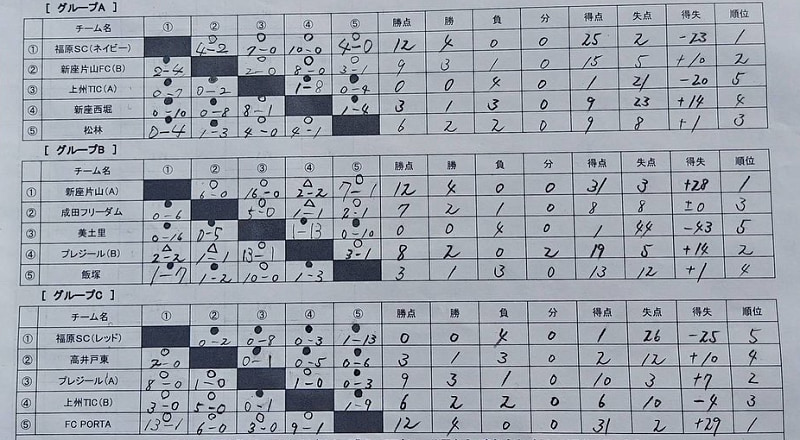 [ グループA ]
チーム名 ① ② ③ ④ ⑤ 勝点 勝 負 分 得点 失点 得失 順位
① 福原SC(ネイビー) 4-2 7-0 10-0 4-0 12 4 0 0 25 2 -23 1
② 新座片山FC(B) 2-4 2-0 8-0 3-1 9 3 1 0 15 5 +10 2
③ 上州TIC(A) 0-7 0-2 1-8 0-4 0 0 4 0 1 21 -20 5
④ 新座西堀 0-10 0-8 8-1 1-4 3 1 3 0 9 23 +14 4
⑤ 松林 0-4 1-3 4-0 4-1 6 2 2 0 9 8 +1 3
[ グループB ]
チーム名 ① ② ③ ④ ⑤ 勝点 勝 負 分 得点 失点 得失 順位
① 新座片山(A) 6-0 16-0 2-2 7-1 12 4 0 0 31 3 +28 1
② 成田フリーダム 0-6 5-0 1-1 2-1 7 2 1 0 8 8 ±0 3
③ 美土里 0-16 0-5 1-13 0-10 0 0 4 0 1 44 -43 5
④ プレジール(B) 2-2 1-1 13-1 3-1 8 2 0 2 19 5 +14 2
⑤ 飯塚 1-7 1-2 10-0 1-3 3 1 3 0 13 12 +1 4
[ グループC ]
チーム名 ① ② ③ ④ ⑤ 勝点 勝 負 分 得点 失点 得失 順位
① 福原SC(レッド) 0-2 0-8 0-3 1-13 0 0 4 0 1 26 -25 5
② 高井戸東 2-0 0-1 0-5 0-6 3 1 3 0 2 12 +10 4
③ プレジール(A) 8-0 1-0 1-0 0-3 9 3 1 0 10 3 +7 2
④ 上州TIC(B) 3-0 5-0 0-1 1-9 6 2 2 0 6 10 -4 3
⑤ FC PORTA 13-1 6-0 3-0 9-1 12 4 0 0 31 2 +29 1